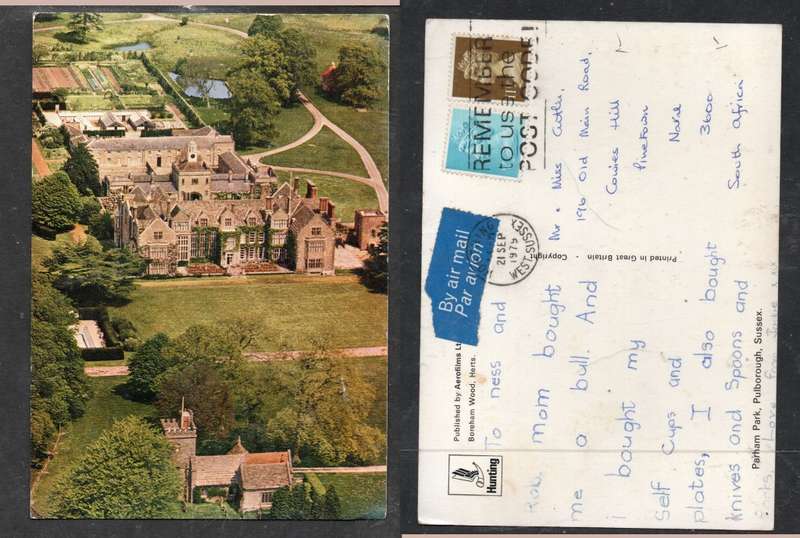 REMEMBER
to use the
POST CODE!
21 SEP
1975
WEST SUSSEX
By air mail
Par avion
Mr & Mrs Cutler,
196 Old Main Road,
Cowies Hill
Pinetown
Natal
3600
South Africa
To ness and
Rob. mom bought
me a bull. And
i bought my
self Cups and
plates, I also bought
knives and Spoons and
forks, Love from
Printed in Great Britain · Copyright
Published by Aerofilms Lt
Boreham Wood, Herts.
Hunting
Parham Park, Pulborough, Sussex.